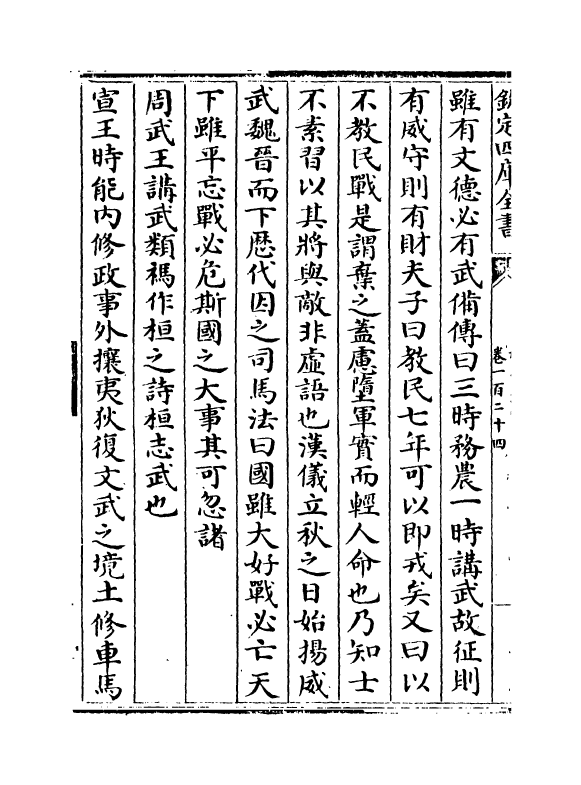 欽定四庫全書
卷一百二十四
雖有文德必有武備傳曰三時務農一時講武故征則
有威守則有財夫子曰教民七年可以即戎矣又曰以
不教民戰是謂棄之蓋慮墮軍實而輕人命也乃知士
不素習以其將與敵非虛語也漢儀立秋之日始揚威
武魏晉而下歷代因之司馬法曰國雖大好戰必亡天
下雖平忘戰必危斯國之大事其可忽諸
周武王講武類禡作桓之詩桓志武也
宣王時能內修政事外攘夷狄復文武之境土修車馬